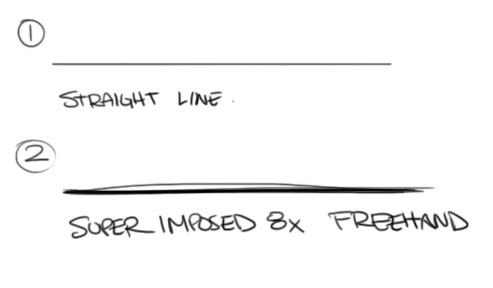 ①
STRAIGHT LINE.
②
SUPER IMPOSED 8x FREEHAND